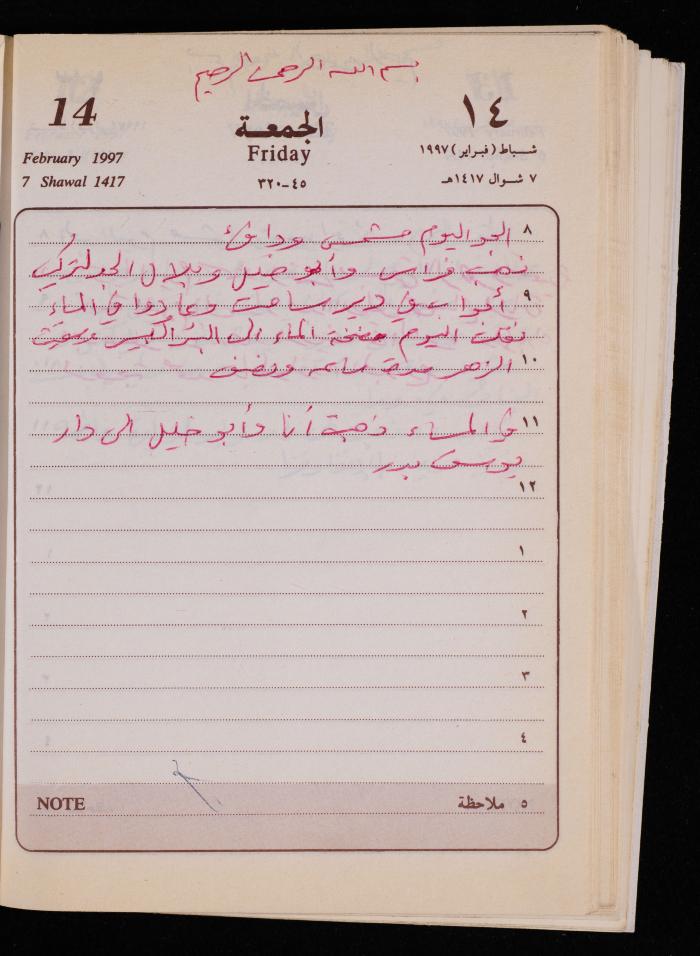 بسم الله الرحمن الرحيم
14
February 1997
7 Shawal 1417
الجمعة
Friday
٤٥-٣٢٠
١٤
شباط (فبراير) ١٩٩٧
٧ شوال ١٤١٧هـ
٨ الجو اليوم مشمس ودافئ
ذهب فراس وأبو خليل وبلال الجد لتركيب
٩ أبواب في دير سامت وعادوا في المساء
نقلت اليوم مضخة الماء الى البئر الكبير وسقيت
١٠ الزهر مدة ساعه ونصف
١١ وفي المساء ذهبة أنا وأبو خليل الى دار
يوسف بدر
١٢
١
٢
٣
٤
NOTE
٥ ملاحظة